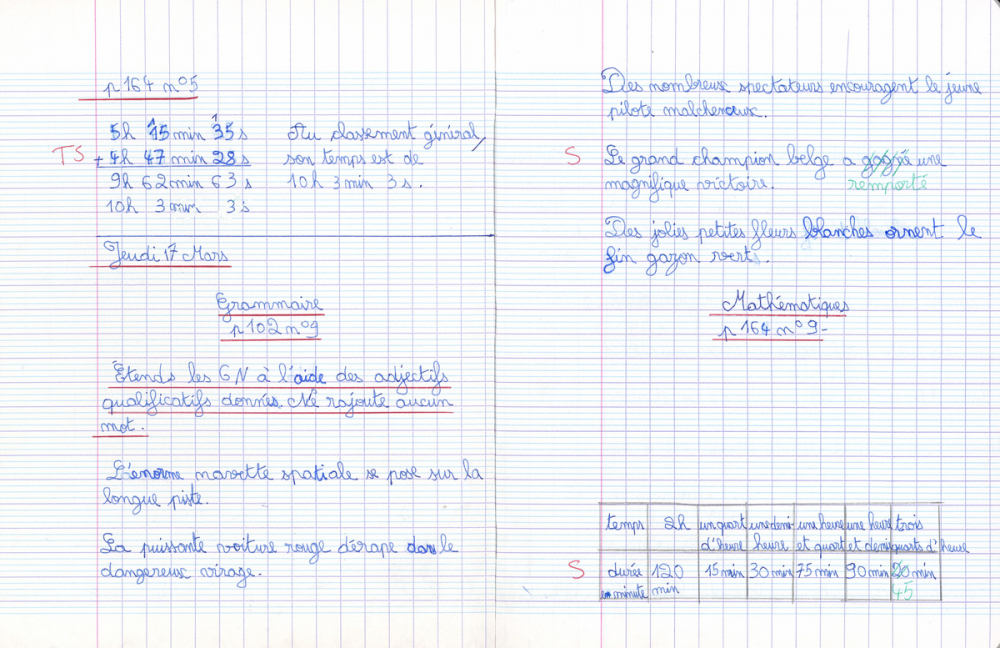 p 164 n°5
5h 15 min 35 s
TS + 4h 47 min 28 s
9h 62 min 63 s
10h 3 min 3 s
Au classement général,
son temps est de
10 h 3 min 3 s.
Jeudi 17 Mars
Grammaire
p 102 n°9
Étends les GN à l'aide des adjectifs
qualificatifs donnés. Ne rajoute aucun
mot.
L'énorme navette spatiale se pose sur la
longue piste.
La puissante voiture rouge dérape dans le
dangereux virage.
Des nombreux spectateurs encouragent le jeune
pilote malchanceux.
S Le grand champion belge a une
magnifique victoire. remporté
Des jolies petites fleurs blanches ornent le
fin gazon vert.
Mathématiques
p 164 n° 9-
temps 2h un quart une demi- une heure une heure trois
d'heure heure et quart et demi quarts d'heure
S durée 120 15 min 30 min 75 min 90 min 20 min
en minute min 45